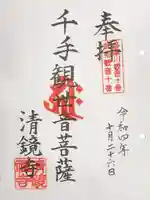 奉拝
千手観世音菩薩
清鏡寺
令和四年
十月二十六日